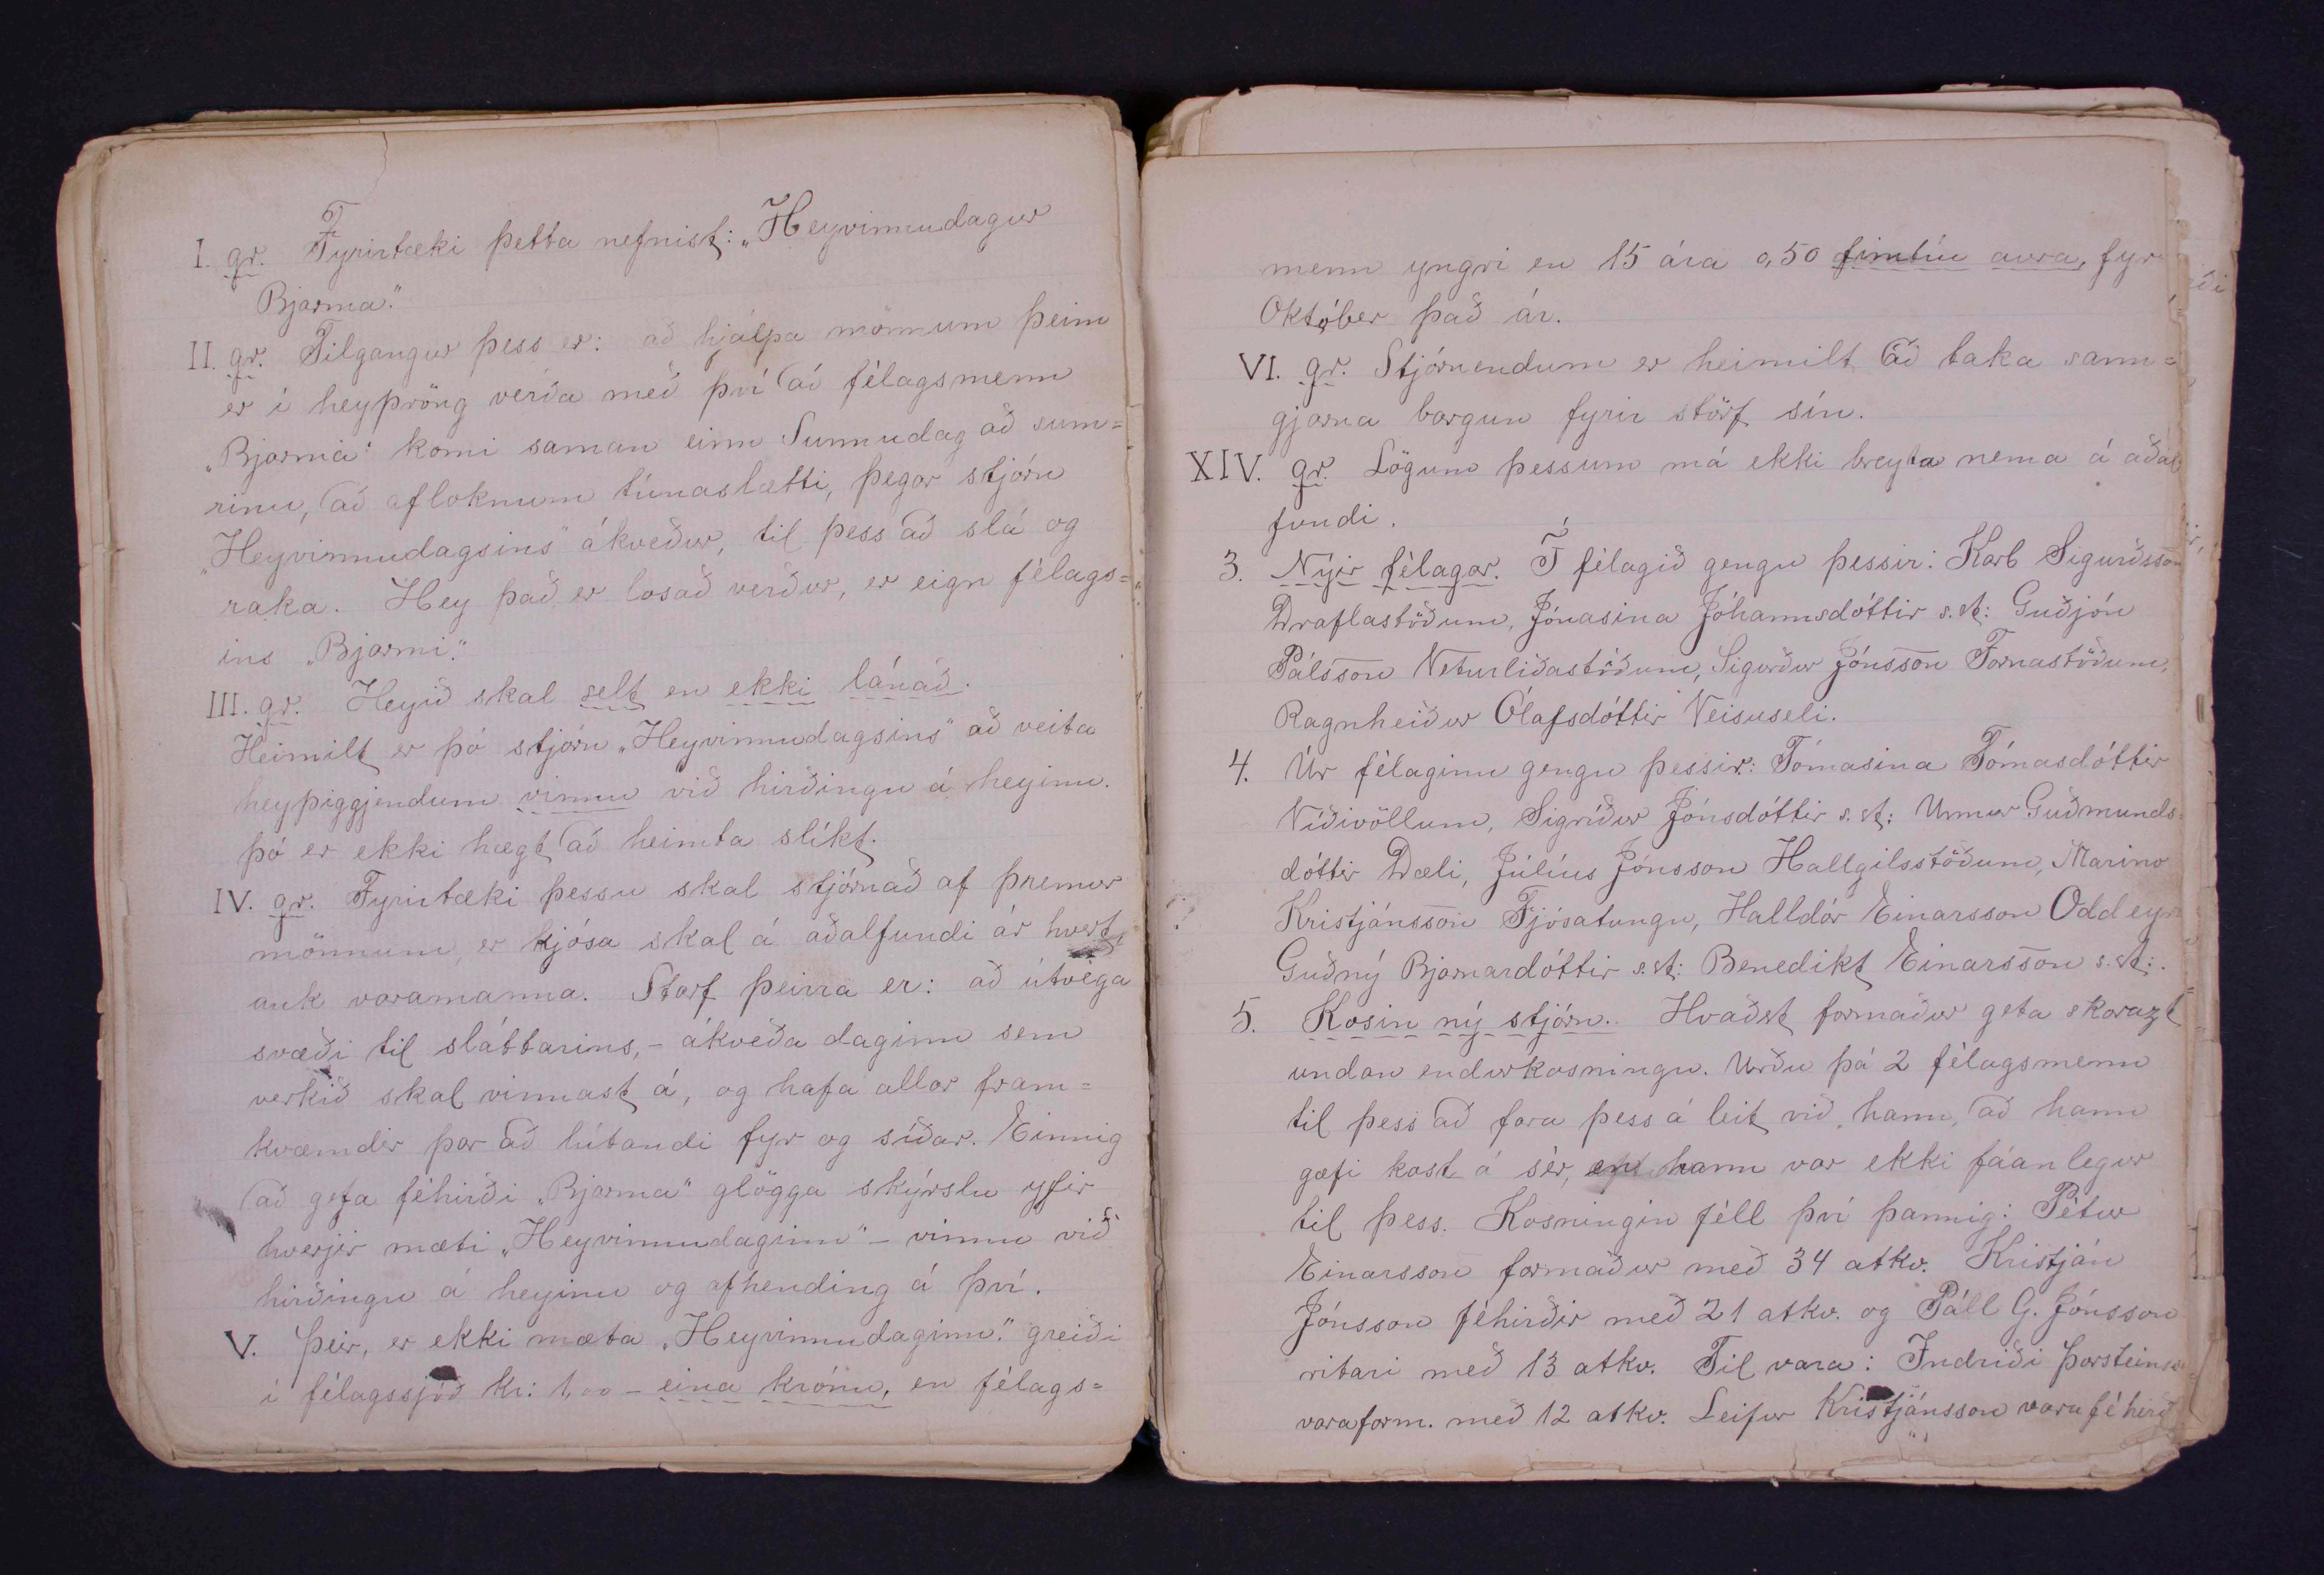 I. gr. Fyrirtæki þetta nefnist: „Heyvinnudagur
Bjarma."
II. gr. Tilgangur þess er: að hjálpa mönnum þeim
er í heyþröng verða með því að félagsmenn
„Bjarma" komi saman einn Sunnudag að sum=
rinu, að afloknum túnaslætti, þegar stjórn
„Heyvinnudagsins" ákveður, til þess að slá og
raka. Hey það er losað verður, er eign félags=
ins „Bjarmi".
III. gr. Heyið skal selt en ekki lánað.
Heimilt er þó stjórn „Heyvinnudagsins" að veita
heyþiggjendum vinnu við hirðingu á heyinu.
þó er ekki hægt að heimta slíkt.
IV. gr. Fyrirtæki þessu skal stjórnað af þremur
mönnum, er kjósa skal á aðalfundi ár hvert,
auk varamanna. Starf þeirra er: að útvega
svæði til sláttarins, - ákveða daginn sem
verkið skal vinnast á, og hafa allar fram=
kvæmdir þar að lútandi fyr og síðar. Einnig
að gefa féhirði „Bjarma" glögga skýrslu yfir
hverjir mæti „Heyvinnudaginn" - vinnu við
hirðingu á heyinu og afhending á því.
V. Þeir, er ekki mæta „Heyvinnudaginn." greiði
í félagssjóð kr: 1,00 - eina krónu, en félags=
menn yngri en 15 ára 0,50 fimtíu aura, fyr
Október það ár.
VI. gr. Stjórnendum er heimilt að taka sann=
gjarna borgun fyrir störf sín.
XIV. gr. Lögum þessum má ekki breyta nema á aðal
fundi.
3. Nýir félagar. Í félagið gengu þessir: Karl Sigurðsson
Draflastöðum, Jónasina Jóhannsdóttir s.st: Guðjón
Pálsson Veturliðastöðum, Sigurður Jónsson Fornastöðum,
Ragnheiður Ólafsdóttir Veisuseli.
4. Úr félaginu gengu þessir: Tómasina Tómasdóttir
Víðivöllum, Sigríður Jónsdóttir s.st: Unnur Guðmunds=
dóttir Dæli, Júlíus Jónsson Hallgilsstöðum, Marino
Kristjánsson Fjósatungu, Halldór Einarsson Oddeyri
Guðný Bjarnardóttir s.st: Benedikt Einarsson s.st:.
5. Kosin ný stjórn. Hvaðst formaður geta skorazt
undan endurkosningu. Urðu þá 2 félagsmenn
til þess að fara þess á leit við hann, að hann
gæfi kost á sér, en hann var ekki fáanlegur
til þess. Kosningin féll því þannig: Pétur
Einarsson formaður með 34 atkv. Kristján
Jónsson féhirðir með 21 atkv. og Páll G. Jónsson
ritari með 13 atkv. Til vara: Indriði Þorsteinsson
varaform. með 12 atkv. Leifur Kristjánsson varaféhirð